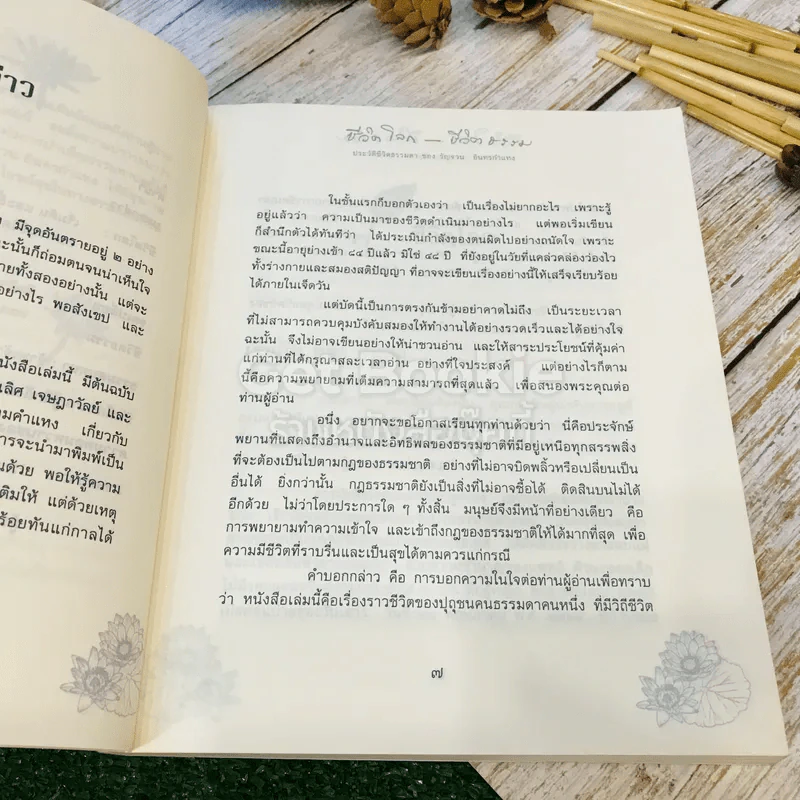 าว
มีจุดอันตรายอยู่ ๒ อย่าง
ะนั้นก็ถ่อมตนจนน่าเห็นใจ
ายทั้งสองอย่างนั้น แต่จะ
อย่างไร พอสังเขป และ
นังสือเล่มนี้ มีต้นฉบับ
เลิศ เจษฎาวัลย์ และ
ามคำแหง เกี่ยวกับ
การจะนำมาพิมพ์เป็น
นด้วย พอให้รู้ความ
ติมให้ แต่ด้วยเหตุ
ร้อยทันแก่กาลได้
ชีวิตโลก — ชีวิตธรรม
ประวัติชีวิตธรรมดา ของ รัญจวน อินทรกำแหง
ในชั้นแรกก็บอกตัวเองว่า เป็นเรื่องไม่ยากอะไร เพราะรู้
อยู่แล้วว่า ความเป็นมาของชีวิตดำเนินมาอย่างไร แต่พอเริ่มเขียน
ก็สำนึกตัวได้ทันทีว่า ได้ประเมินกำลังของตนผิดไปอย่างถนัดใจ เพราะ
ขณะนี้อายุย่างเข้า ๘๔ ปีแล้ว มิใช่ ๔๘ ปี ที่ยังอยู่ในวัยที่แคล่วคล่องว่องไว
ทั้งร่างกายและสมองสติปัญญา ที่อาจจะเขียนเรื่องอย่างนี้ให้เสร็จเรียบร้อย
ได้ภายในเจ็ดวัน
แต่บัดนี้เป็นการตรงกันข้ามอย่าคาดไม่ถึง เป็นระยะเวลา
ที่ไม่สามารถควบคุมบังคับสมองให้ทำงานได้อย่างรวดเร็วและได้อย่างใจ
ฉะนั้น จึงไม่อาจเขียนอย่างให้น่าชวนอ่าน และให้สาระประโยชน์ที่คุ้มค่า
แก่ท่านที่ได้กรุณาสละเวลาอ่าน อย่างที่ใจประสงค์ แต่อย่างไรก็ตาม
นี้คือความพยายามที่เต็มความสามารถที่สุดแล้ว เพื่อสนองพระคุณต่อ
ท่านผู้อ่าน
อนึ่ง อยากจะขอโอกาสเรียนทุกท่านด้วยว่า นี่คือประจักษ์
พยานที่แสดงถึงอำนาจและอิทธิพลของธรรมชาติที่มีอยู่เหนือทุกสรรพสิ่ง
ที่จะต้องเป็นไปตามกฎของธรรมชาติ อย่างที่ไม่อาจบิดพลิ้วหรือเปลี่ยนเป็น
อื่นได้ ยิ่งกว่านั้น กฎธรรมชาติยังเป็นสิ่งที่ไม่อาจซื้อได้ ติดสินบนไม่ได้
อีกด้วย ไม่ว่าโดยประการใด ๆ ทั้งสิ้น มนุษย์จึงมีหน้าที่อย่างเดียว คือ
การพยายามทำความเข้าใจ และเข้าถึงกฎของธรรมชาติให้ได้มากที่สุด เพื่อ
ความมีชีวิตที่ราบรื่นและเป็นสุขได้ตามควรแก่กรณี
คำบอกกล่าว คือ การบอกความในใจต่อท่านผู้อ่านเพื่อทราบ
ว่า หนังสือเล่มนี้คือเรื่องราวชีวิตของปุถุชนคนธรรมดาคนหนึ่ง ที่มีวิถีชีวิต
๗